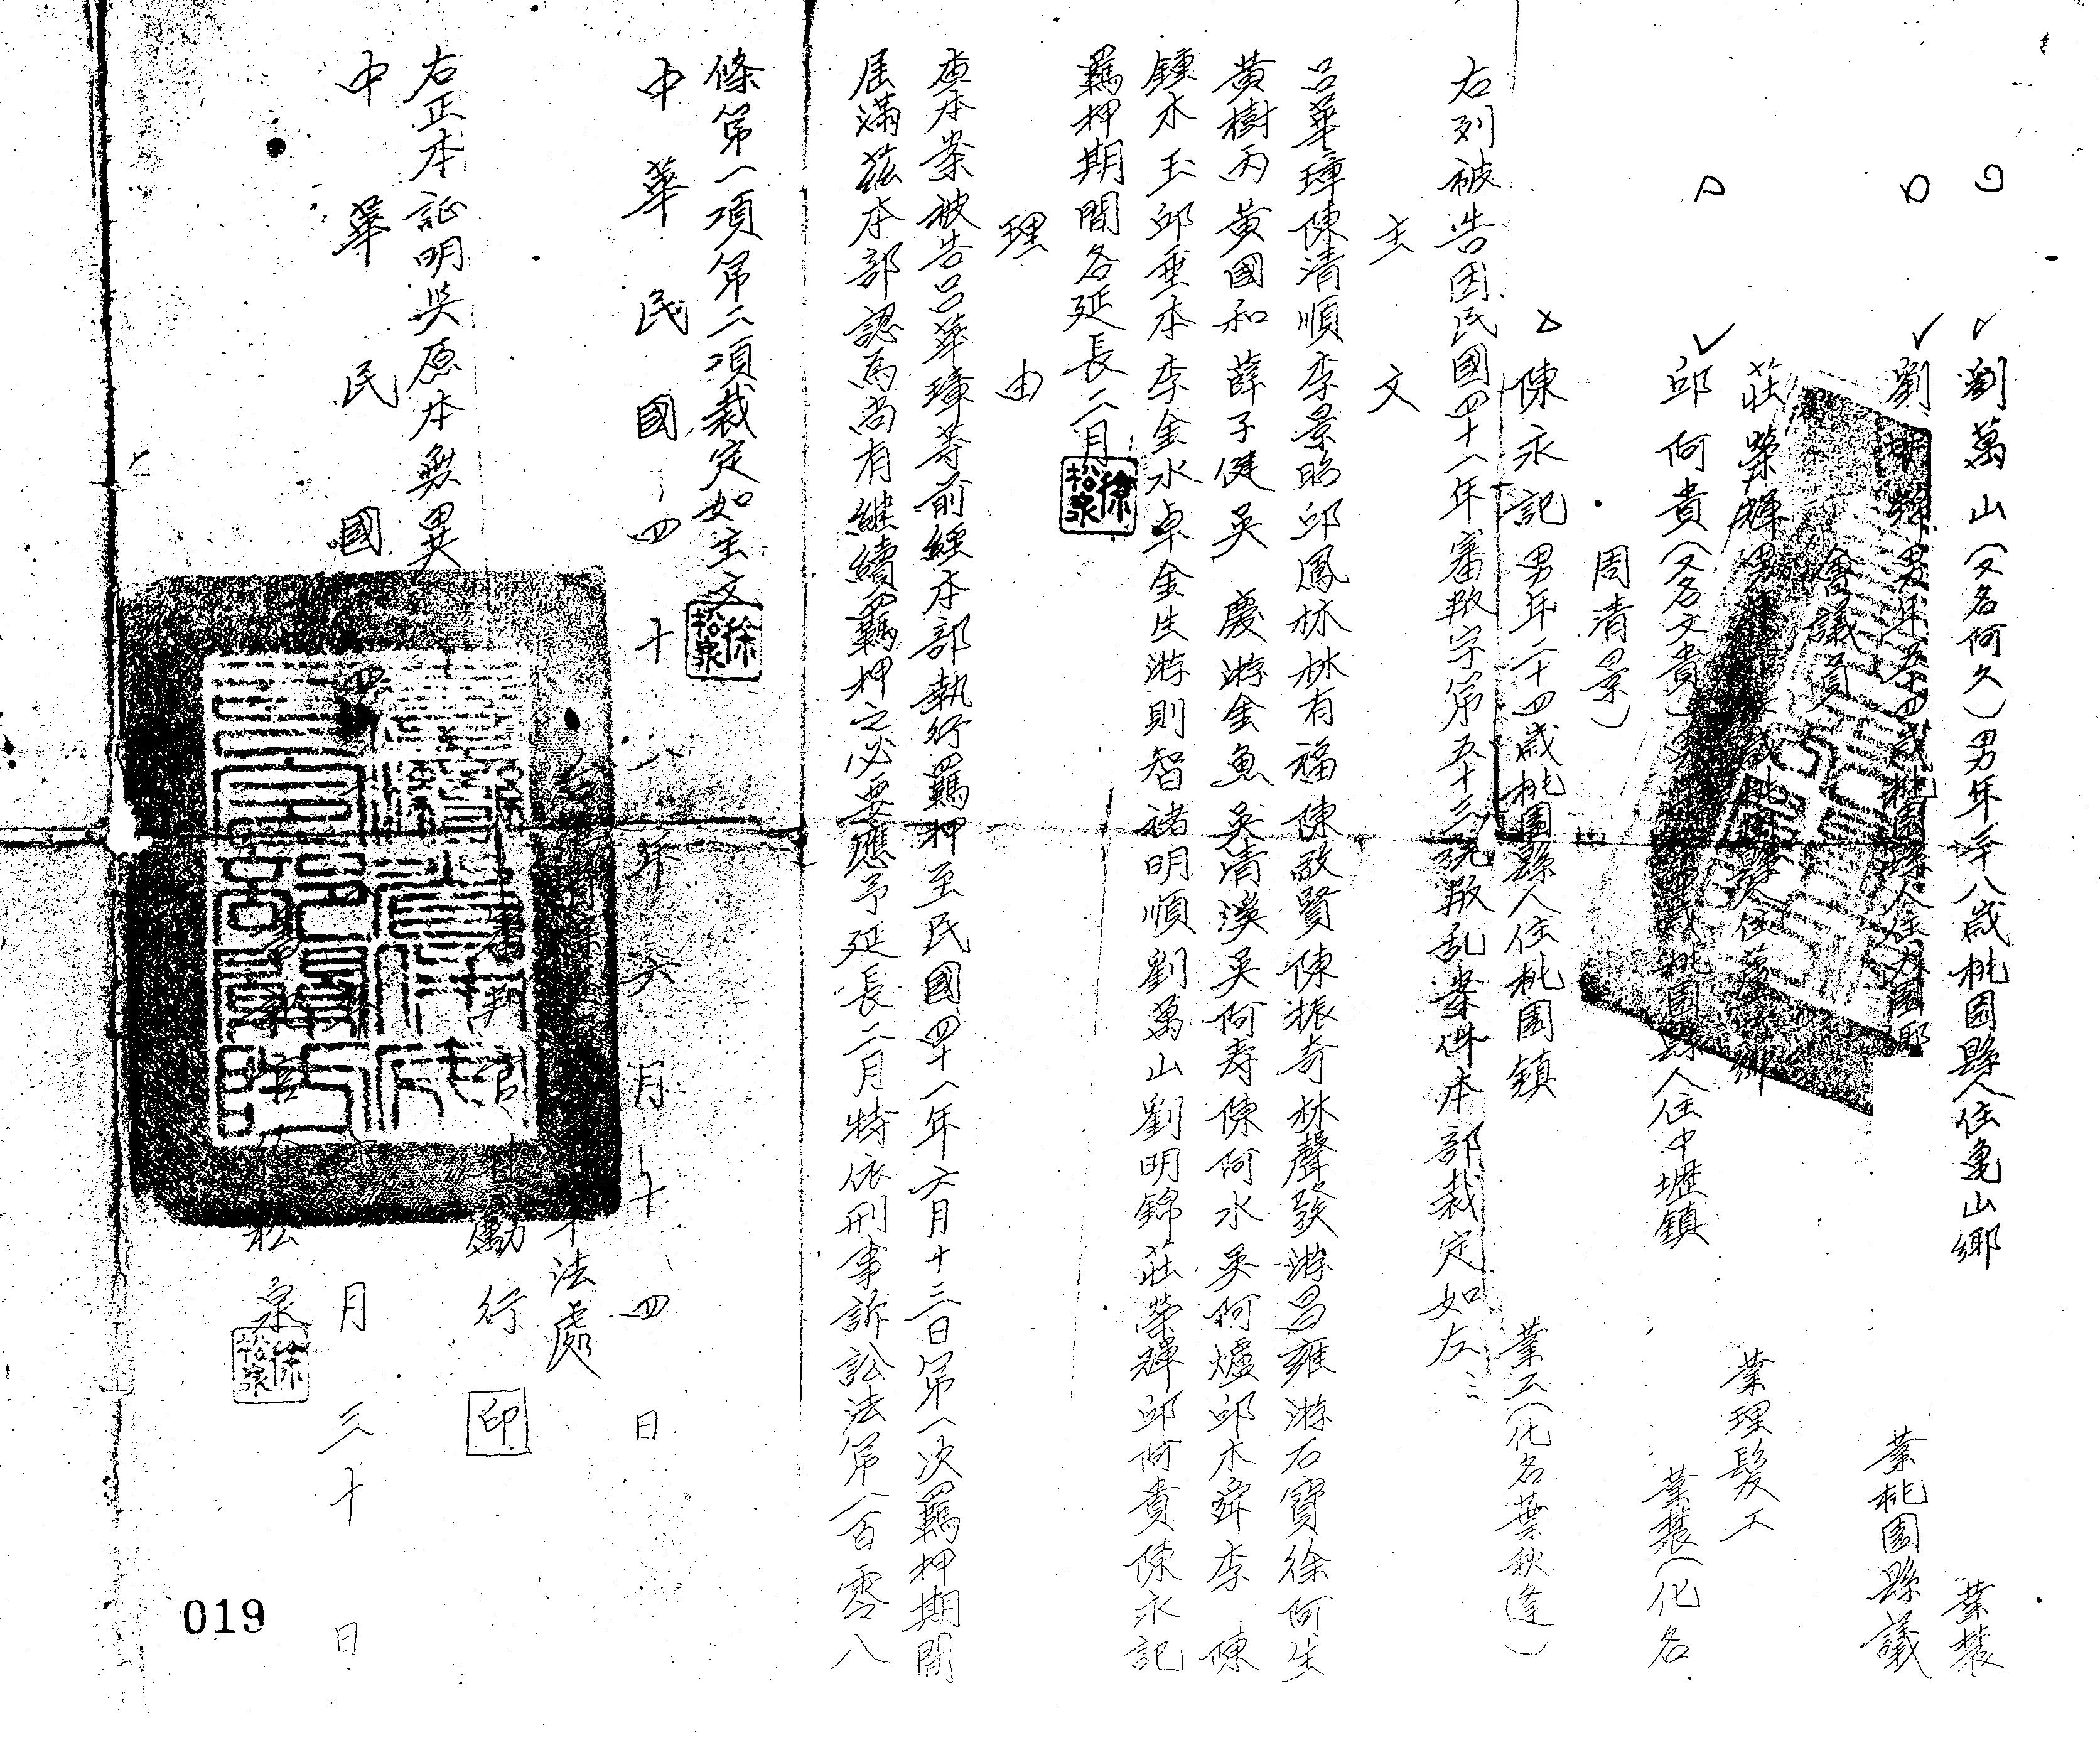 劉萬山(又名阿久)男年三十八歲桃園縣人住龜山鄉 業農
劉明錦男年五十四歲桃園縣人住大園鄉 業桃園縣議
會議員
莊榮輝男 歲桃園縣人住蘆竹鄉 業理髮工
邱阿貴(又名文貴) 歲桃園縣人住中壢鎮 業農(化名
周清景)
陳永記男年二十四歲桃園縣人住桃園鎮 業工(化名葉秋逢)
右列被告因民國四十八年審叛字第五十三號叛乱案件本部裁定如左:
主文
呂華璋陳清順李景昭邱鳳林林有福陳啟賢陳振奇林聲發游昌雍游石寶徐阿生
黃樹丙黃國和薛子健吳慶游金魚吳清溪吳阿寿陳阿水吳阿爐邱木舜李陳
鍾水玉邱垂本李金水卓金生游則智禇明順劉萬山劉明錦莊榮輝邱阿貴陳永記
羈押期間各延長二月
徐松泉
理由
查本案被告呂華璋等前經本部執行羈押至民國四十八年六月十三日第一次羈押期間
屆滿茲本部認為尚有继續羈押之必要應予延長二月特依刑事訴訟法第一百零八
條第一項第二項裁定如主文
徐松泉
中華民國四十八年六月十四日
台灣 法處
審判官 勳行 印
右正本証明與原本無異
中華民國四 月三十日
松泉
徐松泉
019